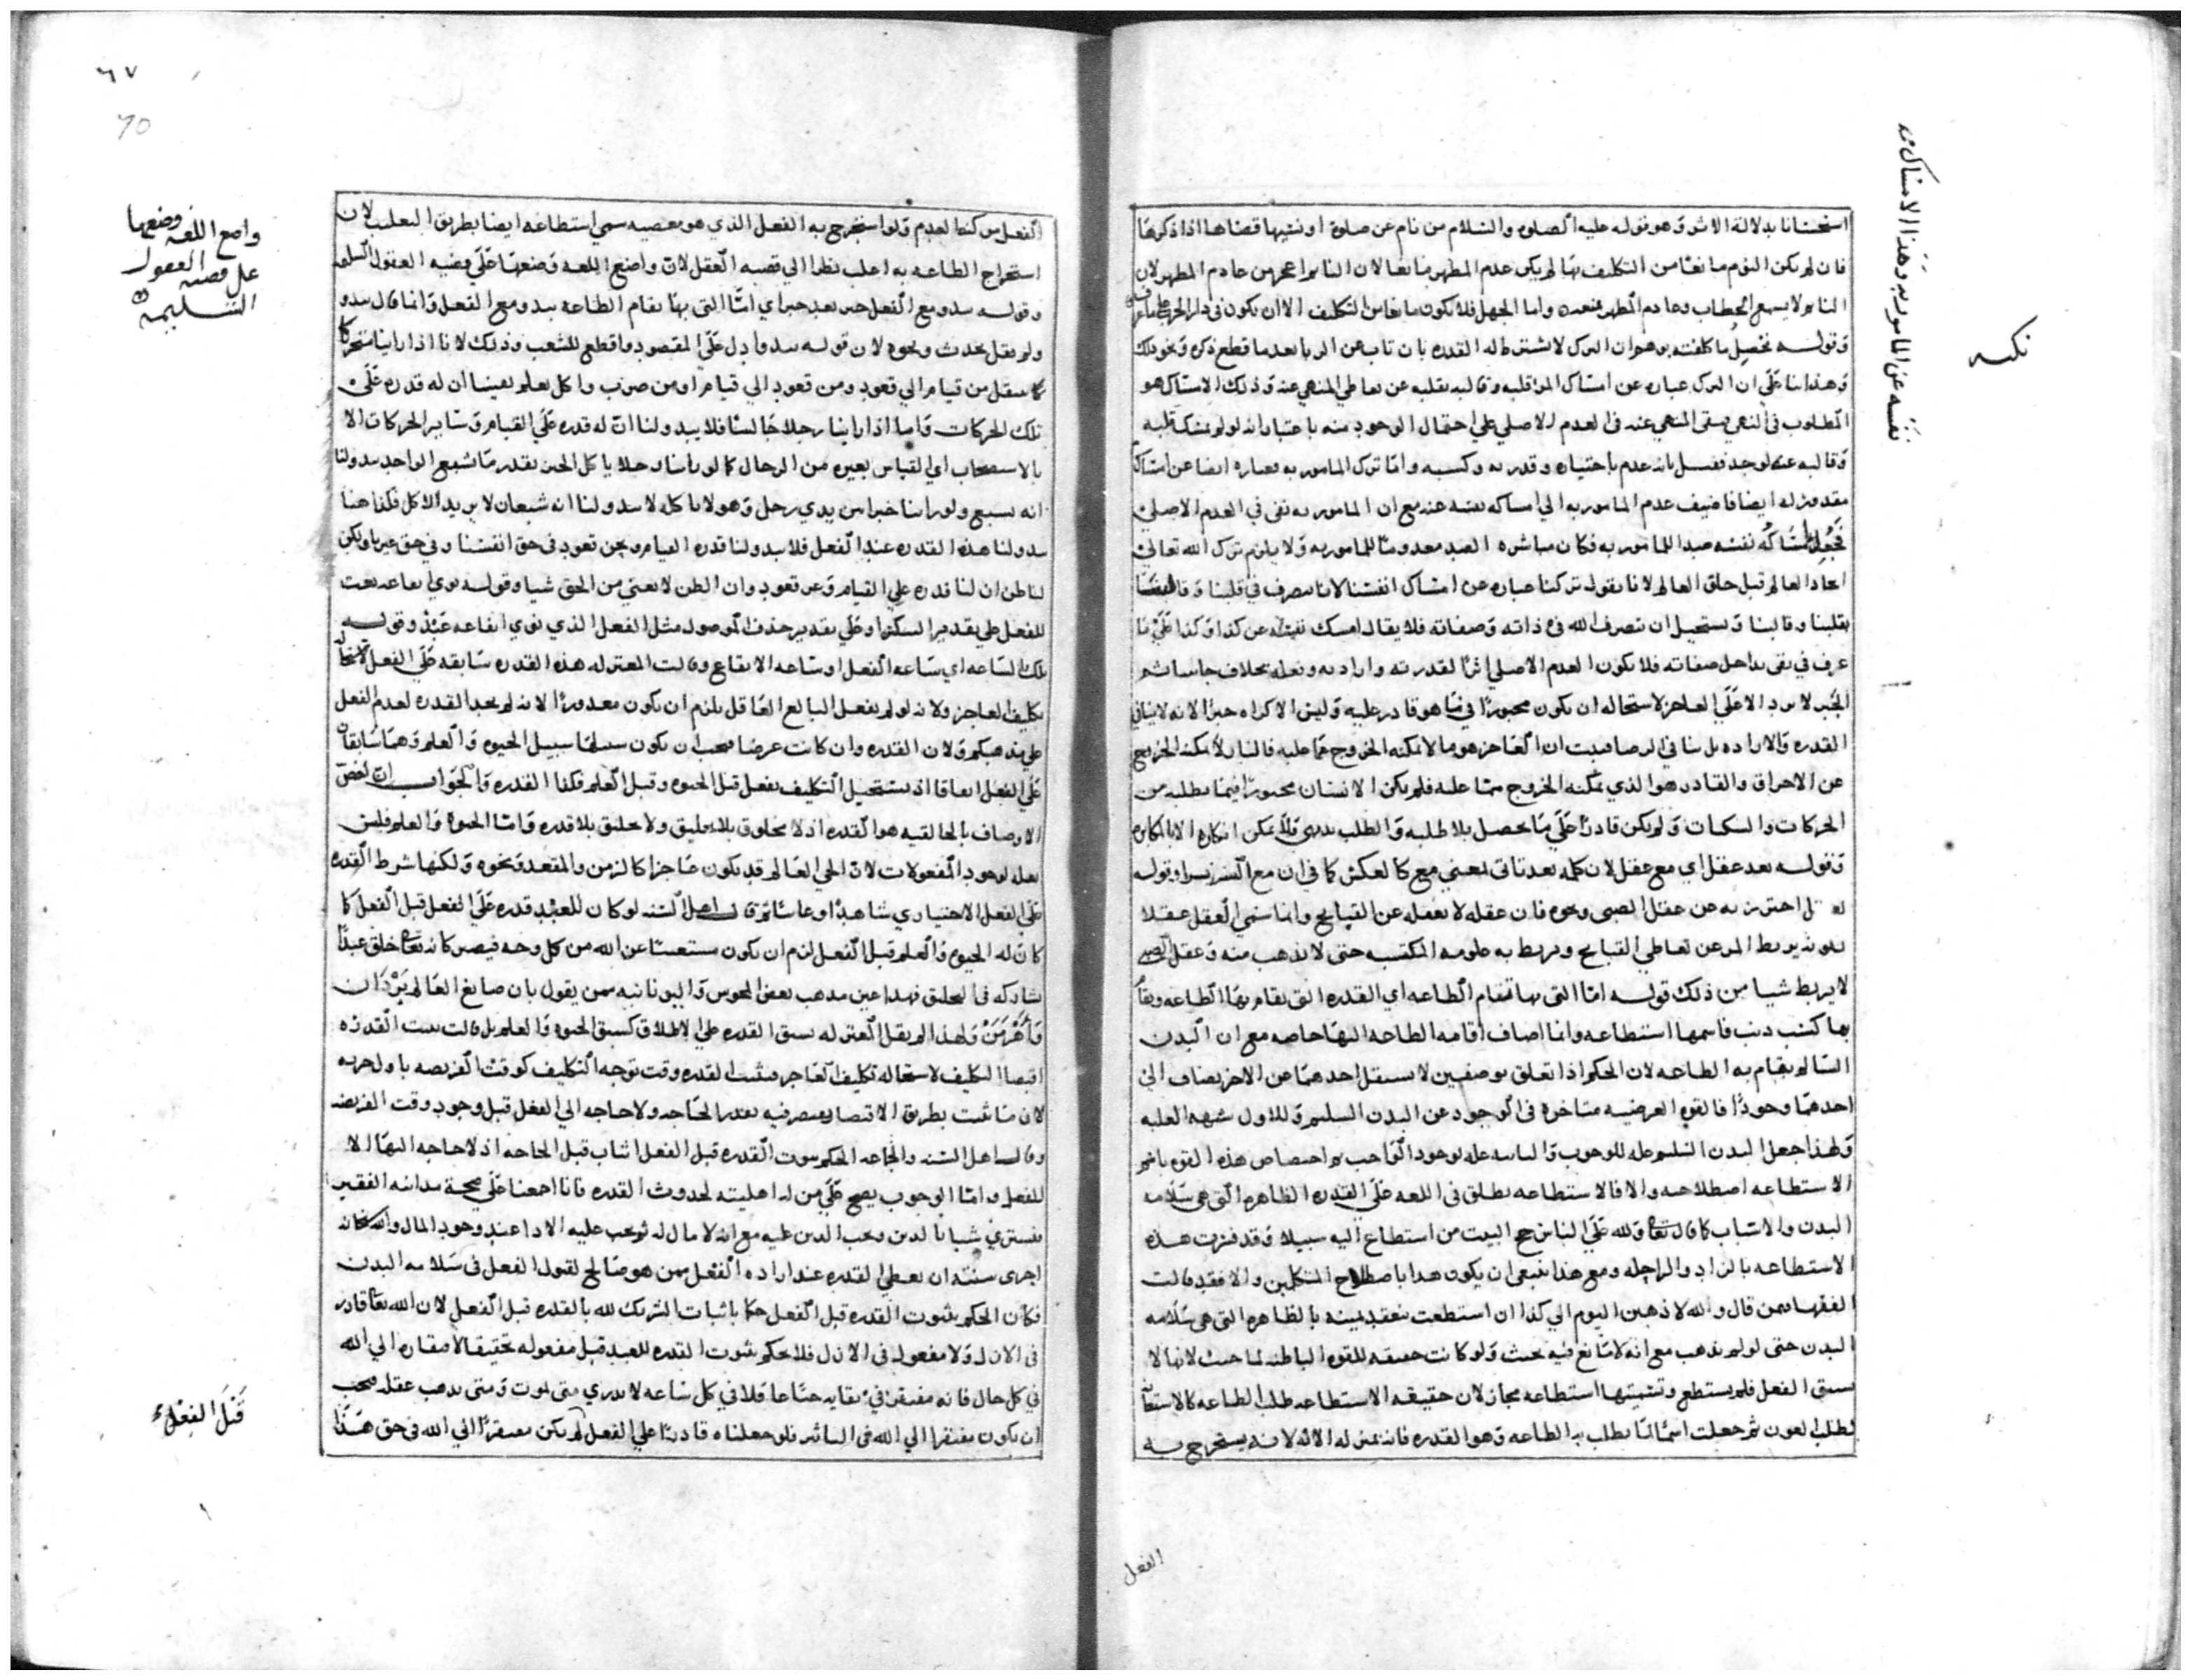 استحسانا بدلالة الاثر وهو قوله عليه الصلوه والسلام من نام عن صلوة او نسيها قضاها اذا ذكرها
فان لم يكن النوم مانعا من التكليف بها لم يكن عدم المطهر مانعا لان النايم اعجز من عادم المطهر لان
النايم لا يسمع الخطاب وعادم المطهر واما الجهل فلا يكون مانعا من التكليف الا ان يكون في دار الحرب
وقوله تحصيل ما كلفته وهو ان الترك لا يشترط له القدره بان تاب عن الزنا بعد ما قطع ذكره ونحو ذلك
وهذا بنا على ان الترك عباره عن امساك المرؤ قلبه وقالبه بقلبه عن تعاطي المنهي عنه وذلك الامساك هو
المطلوب في النهي فبقى المنهي عنه في العدم الاصلي على احتمال الوجود منه باعتبار انه لو لم يمسك قلبه
وقالبه عنه لوجد فقيل بانه عدم باختياره وقدرته وكسبه واما ترك المامور به فعباره ايضا عن امساك
مقدور له ايضا فاضيف عدم المامور به الي امساكه نفسه عنه مع ان المامور به نفى في العدم الاصلي
فجعل امساكه نفسه ضدا للمامور به فكان مباشره الضد معدوما للمامور به ولا يلزم ترك الله تعالى
ايجاد العالم قبل خلق العالم لانا نقول تركنا عباره عن امساك انفسنا لانا نتصرف في قلبنا وقالبنا
بقلبنا وقالبنا ويستحيل ان يتصرف الله في ذاته وصفاته فلا يقال امسك نفسه عن كذا وكذا على ما
عرف في نفي تداخل صفاته فلا يكون العدم الاصلي اثرا لقدرته وارادته وفعله بخلاف جانبنا ثم
الجبر لا يرد الا على العاجز لاستحاله ان يكون مجبورا في ما هو قادر عليه وليس الاكراه جبرا لانه لا ينافي
القدره والاراده بل ينافي الرضا فثبت ان العاجز هو ما لا يمكنه الخروج عما عليه فالنار لا يمكنه الخروج
عن الاحراق والقادر هو الذي يمكنه الخروج مما عليه فلم يكن الانسان مجبورا فيما يطلبه من
الحركات والسكنات ولم يكن قادرا على ما يحصل بلا طلبه والطلب بديهي ولا يمكن انكاره الا بالمكابره
وقوله بعد عقل اي مع عقل لان كلمه بعد تاتي بمعنى مع كالعكس كما في ان مع العسر يسرا وقوله
احترز به عن عقل الصبي ونحوه فان عقله لا يعقله عن القبايح وانما سمي العقل عقلا
لكونه يربط المرء عن تعاطي القبايح ويربط به علومه المكتسبه حتى لا يذهب منه وعقل الصبي
لا يربط شيا من ذلك قوله اما التي بها تقام الطاعه اي القدره التي يقام بها الطاعه ويقام
بها كسب ذنب فاسمها استطاعه وانما اضاف اقامه الطاعه اليها خاصه مع ان البدن
السالم يقام به الطاعه لان الحكم اذا تعلق بوصفين لا يستقل احدهما عن الاخر يضاف الي
احدهما وجودا فالقوه العرضيه متاخره في الوجود عن البدن السليم وللاول شبهه العليه
ولهذا جعل البدن السليم عله للوجوب والثانيه عله لوجود الواجب ثم اختصاص هذه القوه باسم
الاستطاعه اصطلاحيه والا فالاستطاعه يطلق في اللغه على القدره الظاهره التي هي سلامه
البدن والاسباب كما قال تعالى ولله على الناس حج البيت من استطاع اليه سبيلا وقد فسرت هذه
الاستطاعه بالزاد والراحله ومع هذا ينبغي ان يكون هذا باصطلاح المتكلمين والا فقد قالت
الفقها فيمن قال والله لاذهبن اليوم الي كذا ان استطعت ينعقد يمينه بالظاهره التي هي سلامه
البدن حتى لو لم يذهب مع انه لا مانع فيه يحنث ولو كانت حقيقه للقوه الباطنه لما حنث لانها لا
يسبق الفعل فلم يستطع وتسميتها استطاعه مجاز لان حقيقه الاستطاعه طلب الطاعه كالاستعانه
لطلب العون ثم جعلت اسما لما يطلب به الطاعه وهو القدره فانه بمنزله الاله لانه يستخرج به
الفعل
نكته
نفسه عن المامور به وهذا الامساك منه
٦٧
70
الفعل من كتم العدم ولو استخرج به الفعل الذي هو معصيه سمي استطاعه ايضا بطريق التغليب لان
استخراج الطاعه به اغلب نظرا الي قضيه العقل لان واضع اللغه وضعها على قضيه العقول السليمه
وقوله يبدو مع الفعل خبر بعد خبر اي اما التي بها يقام الطاعه يبدو مع الفعل وانما قال يبدو
ولم يقل يحدث ونحوه لان قوله يبدو ادل على المقصود واقطع للشغب وذلك لانا اذا راينا متحركا
كما ينتقل من قيام الي قعود ومن قعود الي قيام او من ضرب واكل نعلم يقينا ان له قدره على
تلك الحركات واما اذا راينا رجلا جالسا فلا يبدو لنا ان له قدره على القيام وساير الحركات الا
بالاستصحاب اي القياس بغيره من الرجال كما لو راينا رجلا ياكل الخبز بقدر ما يشبع الواحد يبدو لنا
انه يشبع ولو راينا خبزا بين يدي رجل وهو لا ياكله لا يبدو لنا انه شبعان لا يريد الاكل فكذا هنا
يبدو لنا هذه القدره عند الفعل فلا يبدو لنا قدره القيام ونحن قعود في حق انفسنا وفي حق غيرنا ولكن
لنا ظن ان لنا قدره على القيام ونحن قعود وان الظن لا يغني من الحق شيا وقوله نوي ايقاعه نعت
للفعل على تقدير السكته او على تقدير حذف الموصول مثل الفعل الذي نوي ايقاعه عبد وقوله
تلك الساعه اي ساعه الفعل او ساعه الايقاع وقالت المعتزله هذه القدره سابقه على الفعل لاستحاله
تكليف العاجز ولانه لو لم يفعل البالغ العاقل يلزم ان يكون معذورا لانه لم يجد القدره لعدم الفعل
على مذهبكم ولان القدره وان كانت عرضا فيجب ان يكون سبيلها سبيل الحيوه والعلم وهما سابقان
على الفعل اتفاقا اذ يستحيل التكليف بفعل قبل الحيوه وقبل العلم فكذا القدره والجواب ان اخص
الاوصاف بالخالقيه هو القدره اذ لا مخلوق بلا تخليق ولا تخليق بلا قدره واما الحيوه والعلم فليس
بعله لوجود المفعولات لان الحي العالم قد يكون عاجزا كالزمن والمقعد ونحوه ولكنها شرط القدره
على الفعل الاختياري شاهدا وغايبا ثم قال اهل السنه لو كان للعبد قدره على الفعل قبل الفعل كما
كان له الحيوه والعلم قبل الفعل لزم ان يكون مستغنيا عن الله من كل وجه فيصير كانه تعالى خلق عبدا
يشاركه في التخليق فهذا عين مذهب بعض المجوس واليونانيه ممن يقول بان صانع العالم يزدان
واهرمن ولهذا لم يقل المعتزله بسبق القدره على الاطلاق كسبق الحيوه والعلم بل قالت يثبت القدره
اقتضا التكليف لاستحاله تكليف العاجز فيثبت القدره وقت توجه التكليف كوقت الفريضه باول جزءه
لان ما ثبت بطريق الاقتضا يقتصر فيه بقدر الحاجه ولا حاجه الي الفعل قبل وجود وقت الفريضه
وقالت اهل السنه والجماعه الحكم بثبوت القدره قبل الفعل اثبات قبل الحاجه اذ لا حاجه اليها الا
للفعل واما الوجوب يصح على من له اهليته لحدوث القدره فانا اجمعنا على صحه مداينه الفقير
فيشتري شيا بالدين ويجب الدين عليه مع انه لا مال له ثم يجب عليه الادا عند وجود المال والله سبحانه
اجرى سنته ان يعطي القدره عند اراده الفعل ممن هو صالح لقبول الفعل في سلامه البدن
فكان الحكم بثبوت القدره قبل الفعل حكما باثبات الشريك لله بالقدره قبل الفعل لان الله تعالى قادر
في الازل ولا مفعوله في الازل فلا يحكم بثبوت القدره للعبد قبل مفعوله تحقيقا لافتقاره الي الله
في كل حال فانه مفتقر في بقايه حتى لا في كل ساعه لا يدري متى يموت ومتى يذهب عقله فيجب
ان يكون مفتقرا الي الله في التاثير فلو جعلناه قادرا على الفعل لم يكن مفتقرا الي الله في حق هذا
واضع اللغه وضعها
على قضيه العقول
السليمه
قبل الفعل